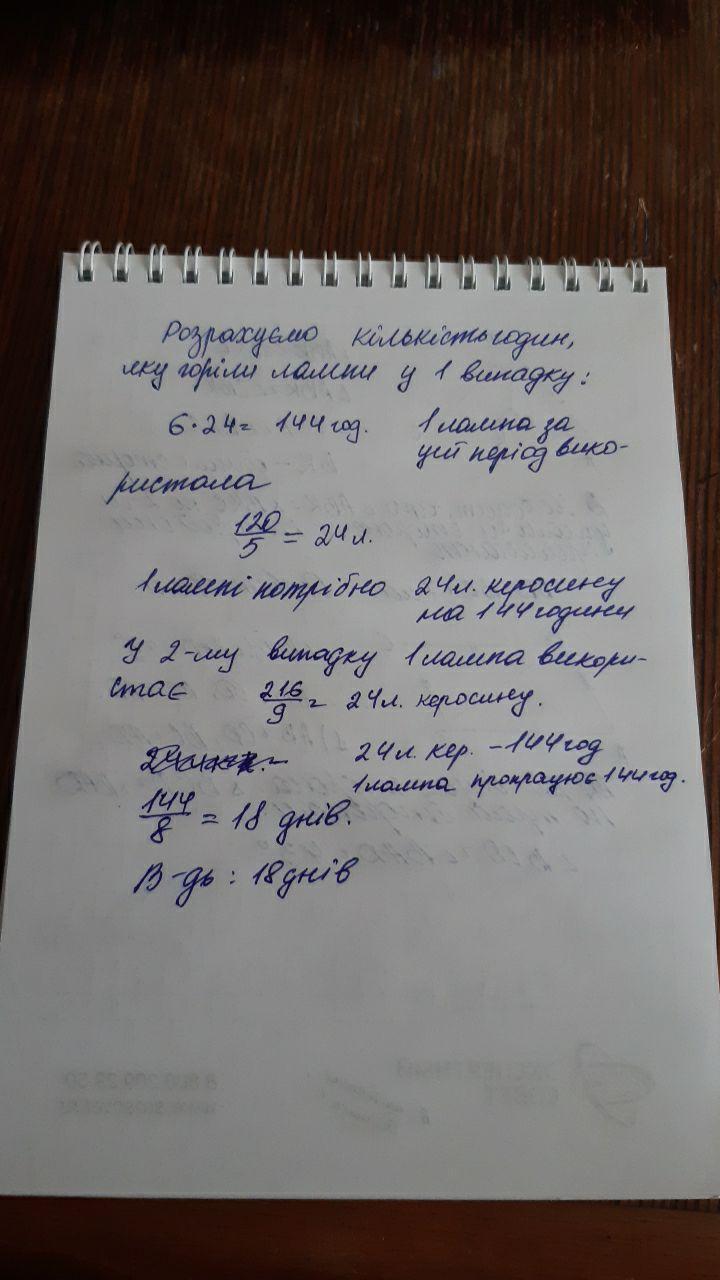 Розрахуємо кількість годин,
яку горіли лампи у 1 випадку:
6·24= 144 год. 1 лампа за
цей період вико-
ристала
120/5 = 24 л.
1 лампі потрібно 24 л. керосину
на 144 години
У 2-му випадку 1 лампа викори-
стає 216/9 = 24 л. керосину.
24 л. кер. – 144 год
1 лампа пропрацює 144 год.
144/8 = 18 днів.
В-дь: 18 днів